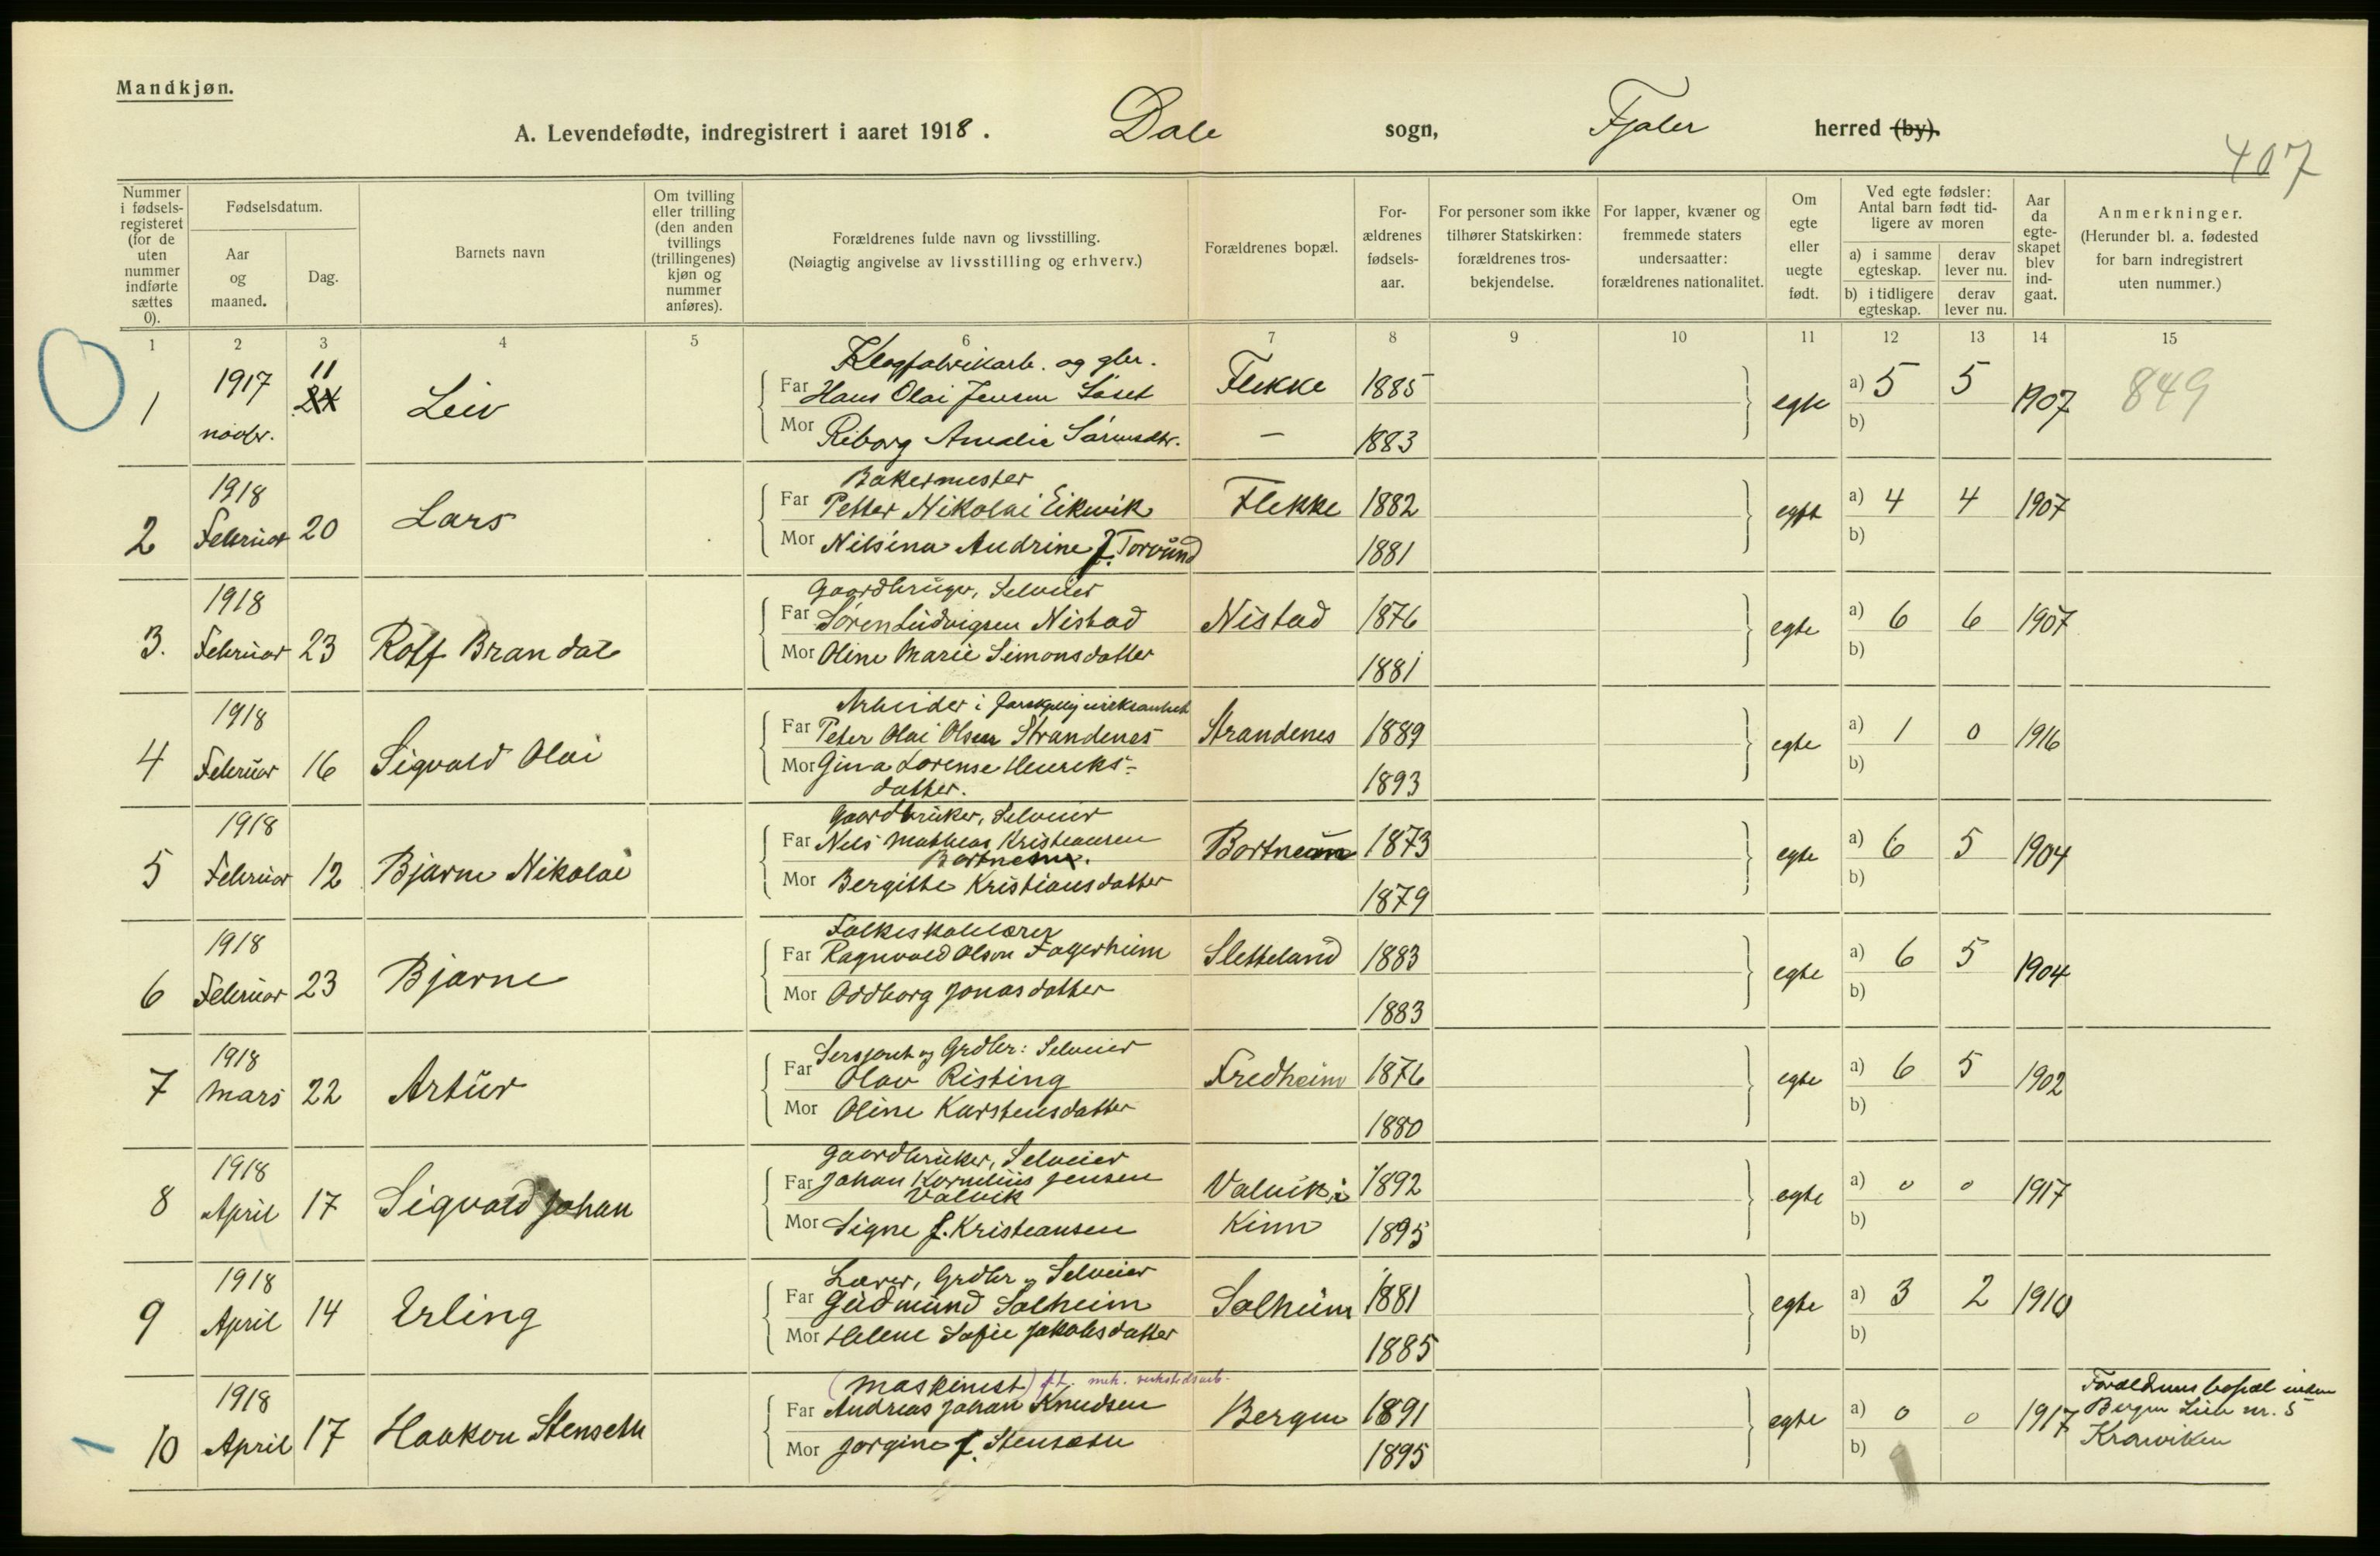 Mandkjøn.
A. Levendefødte, indregistrert i aaret 1918. Dale sogn, Fjaler herred (by).
407
Nummer i fødselsregisteret (for de uten nummer indførte sættes 0).
Fødselsdatum.
Aar og maaned.
Dag.
Barnets navn
Om tvilling eller trilling (den anden tvillings (trillingenes) kjøn og nummer anføres).
Forældrenes fulde navn og livsstilling.
(Nøiagtig angivelse av livsstilling og erhverv.)
Forældrenes bopæl.
Forældrenes fødselsaar.
For personer som ikke tilhører Statskirken: forældrenes trosbekjendelse.
For lapper, kvæner og fremmede staters undersaatter: forældrenes nationalitet.
Om egte eller uegte født.
Ved egte fødsler: Antal barn født tidligere av moren
a) i samme egteskap. derav lever nu.
b) i tidligere egteskap. derav lever nu.
Aar da egteskapet blev indgaat.
Anmerkninger.
(Herunder bl. a. fødested for barn indregistrert uten nummer.)
1 2 3 4 5 6 7 8 9 10 11 12 13 14 15
og gbr.
1 1917 novbr. 11 24 Leiv
Far Hans Olai Jensen Flekke 1885 egte a) 5 5 1907 849
Mor Riborg Amalie – 1883 b)
Bakermester
2 1918 Februar 20 Lars
Far Petter Nikolai Eikevik Flekke 1882 egte a) 4 4 1907
Mor Nilsina Andrine f. Torvund 1881 b)
Gaardbruger, Selveier
3. 1918 Februar 23 Rolf Brandal
Far Søren Ludvigsen Nistad Nistad 1876 egte a) 6 6 1907
Mor Oline Marie Simonsdatter 1881 b)
Arbeider i
4 1918 Februar 16 Sigvald Olai
Far Peter Olai Olsen Strandenes Strandenes 1889 egte a) 1 0 1916
Mor Gina Lorense Henriks=
datter. 1893 b)
Gaardbruker, Selveier
5 1918 Februar 12 Bjarne Nikolai
Far Nels Mathias Kristiansen
Bortnem. Bortnem 1873 egte a) 6 5 1904
Mor Bergitte Kristiansdatter 1879 b)
Folkeskolelærer
6 1918 Februar 23 Bjarne
Far Ragnvald Olson Fagerheim Sletteland 1883 egte a) 6 5 1904
Mor Oddborg Jonasdatter 1883 b)
Sersjant og Grdbr: Selveier
7 1918 Mars 22 Artur
Far Olav Risting Fredheim 1876 egte a) 6 5 1902
Mor Oline Karstensdatter 1880 b)
Gaardbruker, Selveier
8 1918 April 17 Sigvald Johan
Far Johan Kornelius Jensen
Valvik Valvik i 1892 egte a) 0 0 1917
Mor Signe f. Kristiansen Kinn 1895 b)
Lærer, Grdbr og Selveier
9 1918 April 14 Erling
Far Gudmund Solheim Solheim 1881 egte a) 3 2 1910
Mor Helene Sofie Jakobsdatter 1885 b)
(Maskinist) f.t. mek. verkstedsarb.
10 1918 April 17 Haakon Stenseth
Far Andreas Johan Knudsen Bergen 1891 egte a) 0 0 1917
Mor Jorgine f. Stensæth 1895 b)
Forældrenes bopæl
Bergen nr. 5